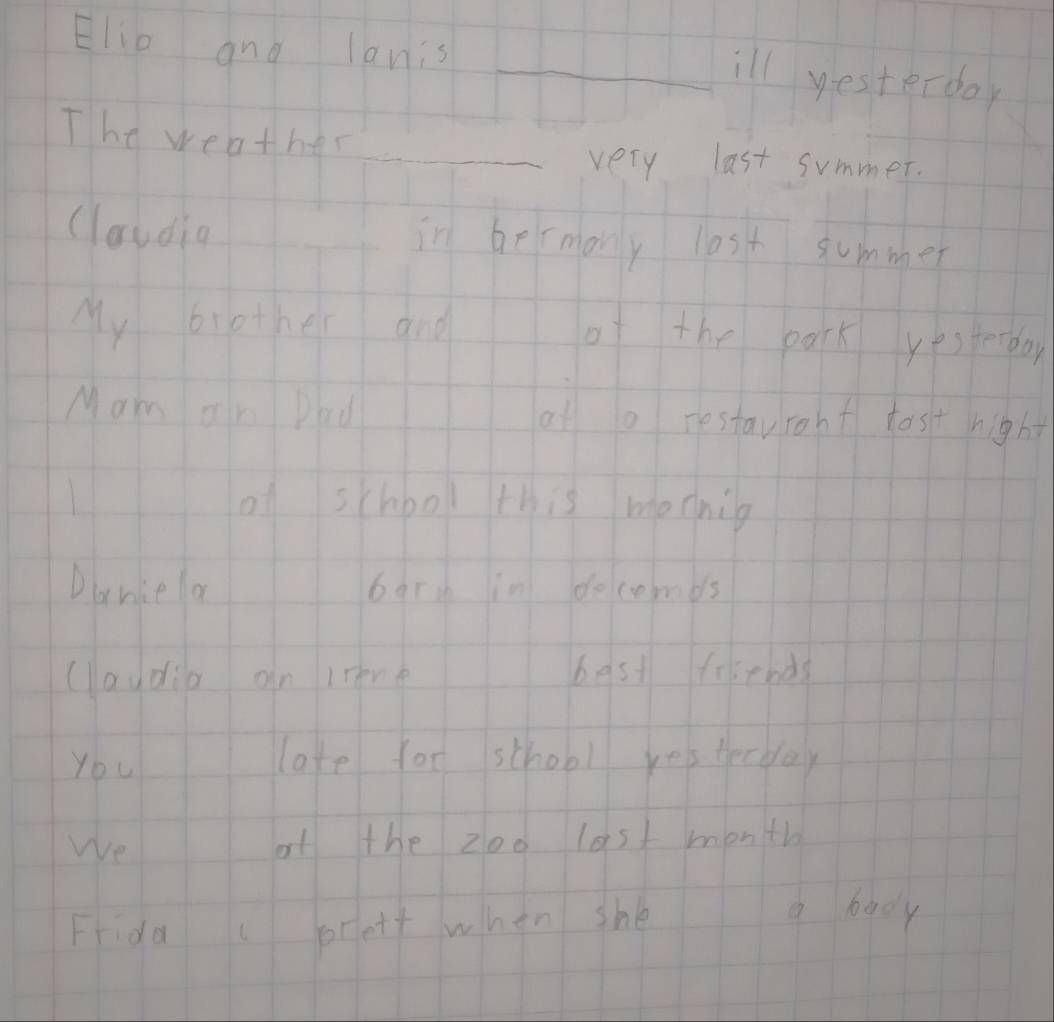 Elia and Ianis ill yesterday
The weather very last summer.
Claudia in Germany last summer
My brother and at the park yesterday
Mam an Dad at a restaurant last night
I at school this mornig
Daniela born in decemds
Claudia an irene best friends
You late for school yesterday
We at the zoo last month
Frida prett when she a bady